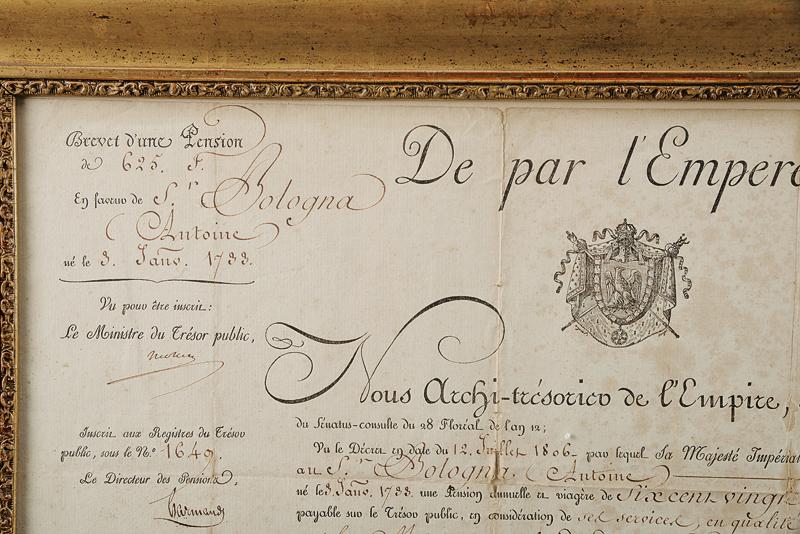 Brevet d'une Pension
de 625. F.
En faveur de S.r Bologna
(Antoine)
né le 3. Janv. 1733.
Vu pour être inscrit:
Le Ministre du Trésor public,
Inscrit aux Registres du Trésor
public, sous le N.o 1649.
Le Directeur des Pensions,
De par l'Empere
Nous Archi-trésorier de l'Empire,
du Sénatus-consulte du 28 Floréal de l'an 12;
Vu le Décret en date du 12. Juillet 1806. par lequel Sa Majesté Impérial
au S.r Bologna. (Antoine)
né le 3. Janv. 1733. une Pension annuelle et viagère de Six cent vingt
payable sur le Trésor public, en considération de ses services, en qualité